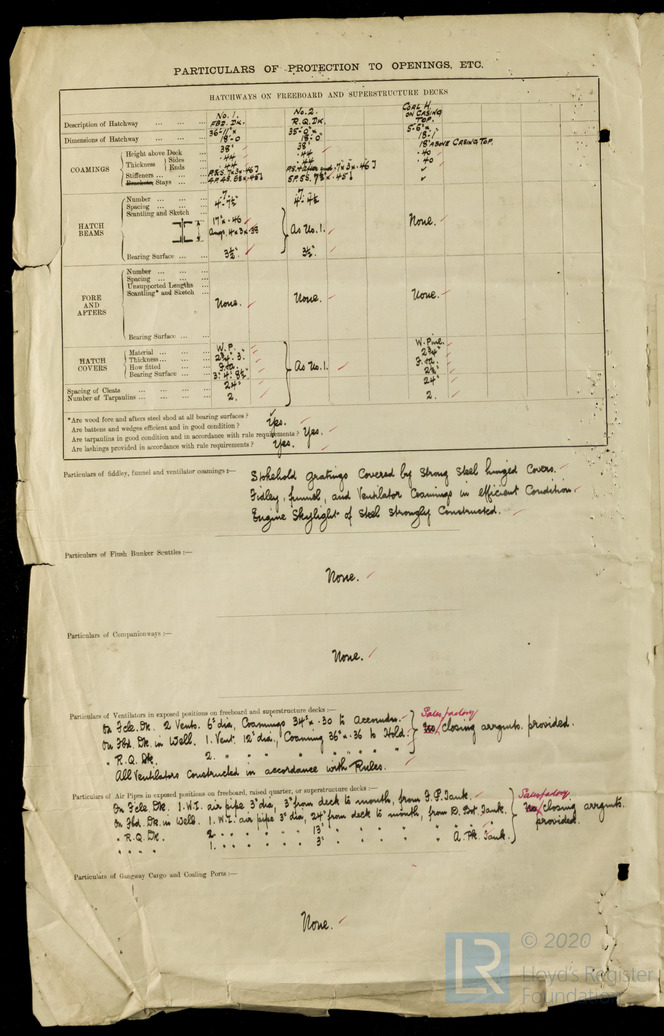 PARTICULARS OF PROTECTION TO OPENINGS, ETC.
HATCHWAYS ON FREEBOARD AND SUPERSTRUCTURE DECKS
Description of Hatchway ... No. 1. FBD. DK. No. 2. R.Q. DK. COAL H. ON CASING TOP.
Dimensions of Hatchway ... 36'-11" x 18'-0 35'-0" x 18'-0" 5'-6" x 18'-1"
COAMINGS
Height above Deck ... 38" 38" 18" ABOVE CASING TOP.
Thickness Sides ... .44 .44 .40
Ends ... .44 .44 .40
Stiffeners ...
Brackets, Stays ...
HATCH BEAMS
Number ... 7 7
Spacing ... 4'-7½" 4'-4½
Scantling and Sketch 17" x .46 As No. 1. None.
Angs. 4 x 3 x .38
Bearing Surface ... 3½" 3½"
FORE AND AFTERS
Number ...
Spacing ...
Unsupported Lengths
Scantling* and Sketch
None. None. None.
Bearing Surface ...
HATCH COVERS
Material ... W.P. W. Pine.
Thickness ... 2¾" 3" As No. 1. 2¾"
How fitted ... F.&A. F.&A.
Bearing Surface ...
Spacing of Cleats ... 24" 24"
Number of Tarpaulins ... 2. 2.
*Are wood fore and afters steel shod at all bearing surfaces?
Are battens and wedges efficient and in good condition? Yes.
Are tarpaulins in good condition and in accordance with rule requirements? Yes.
Are lashings provided in accordance with rule requirements? Yes.
Particulars of fiddley, funnel and ventilator coamings :—
Stokehold gratings Covered by Strong Steel hinged Covers.
Fidley, funnel, and Ventilator Coamings in efficient Condition.
Engine Skylight of Steel Strongly Constructed.
Particulars of Flush Bunker Scuttles :—
None.
Particulars of Companionways :—
None.
Particulars of Ventilators in exposed positions on freeboard and superstructure decks :—
On Fcle. Dk. 2 Vents. 6" dia, Coamings 34" x .30 to Accomdn. Satisfactory
On Fbd. Dk. in Well. 1. Vent. 12" dia, Coaming 36" x .36 to Hold. closing arrgmts. provided.
" R.Q. Dk. 2. " " " " " " "
All Ventilators Constructed in accordance with Rules.
Particulars of Air Pipes in exposed positions on freeboard, raised quarter, or superstructure decks :—
On Fcle. Dk. 1. W.I. air pipe 3" dia, 3" from deck to mouth, from F.P. Tank. Satisfactory
On Fbd. Dk. in Well. 1. W.I. air pipe 3" dia, 24" from deck to mouth, from D. Bot. Tank. closing arrgmts.
" R.Q. Dk. 2. " " " " 13" " " " " " provided.
" " " 1. " " " " 3" " " " A. Pk. Tank.
Particulars of Gangway Cargo and Coaling Ports :—
None.
LR
© 2020
Lloyd's Register
Foundation